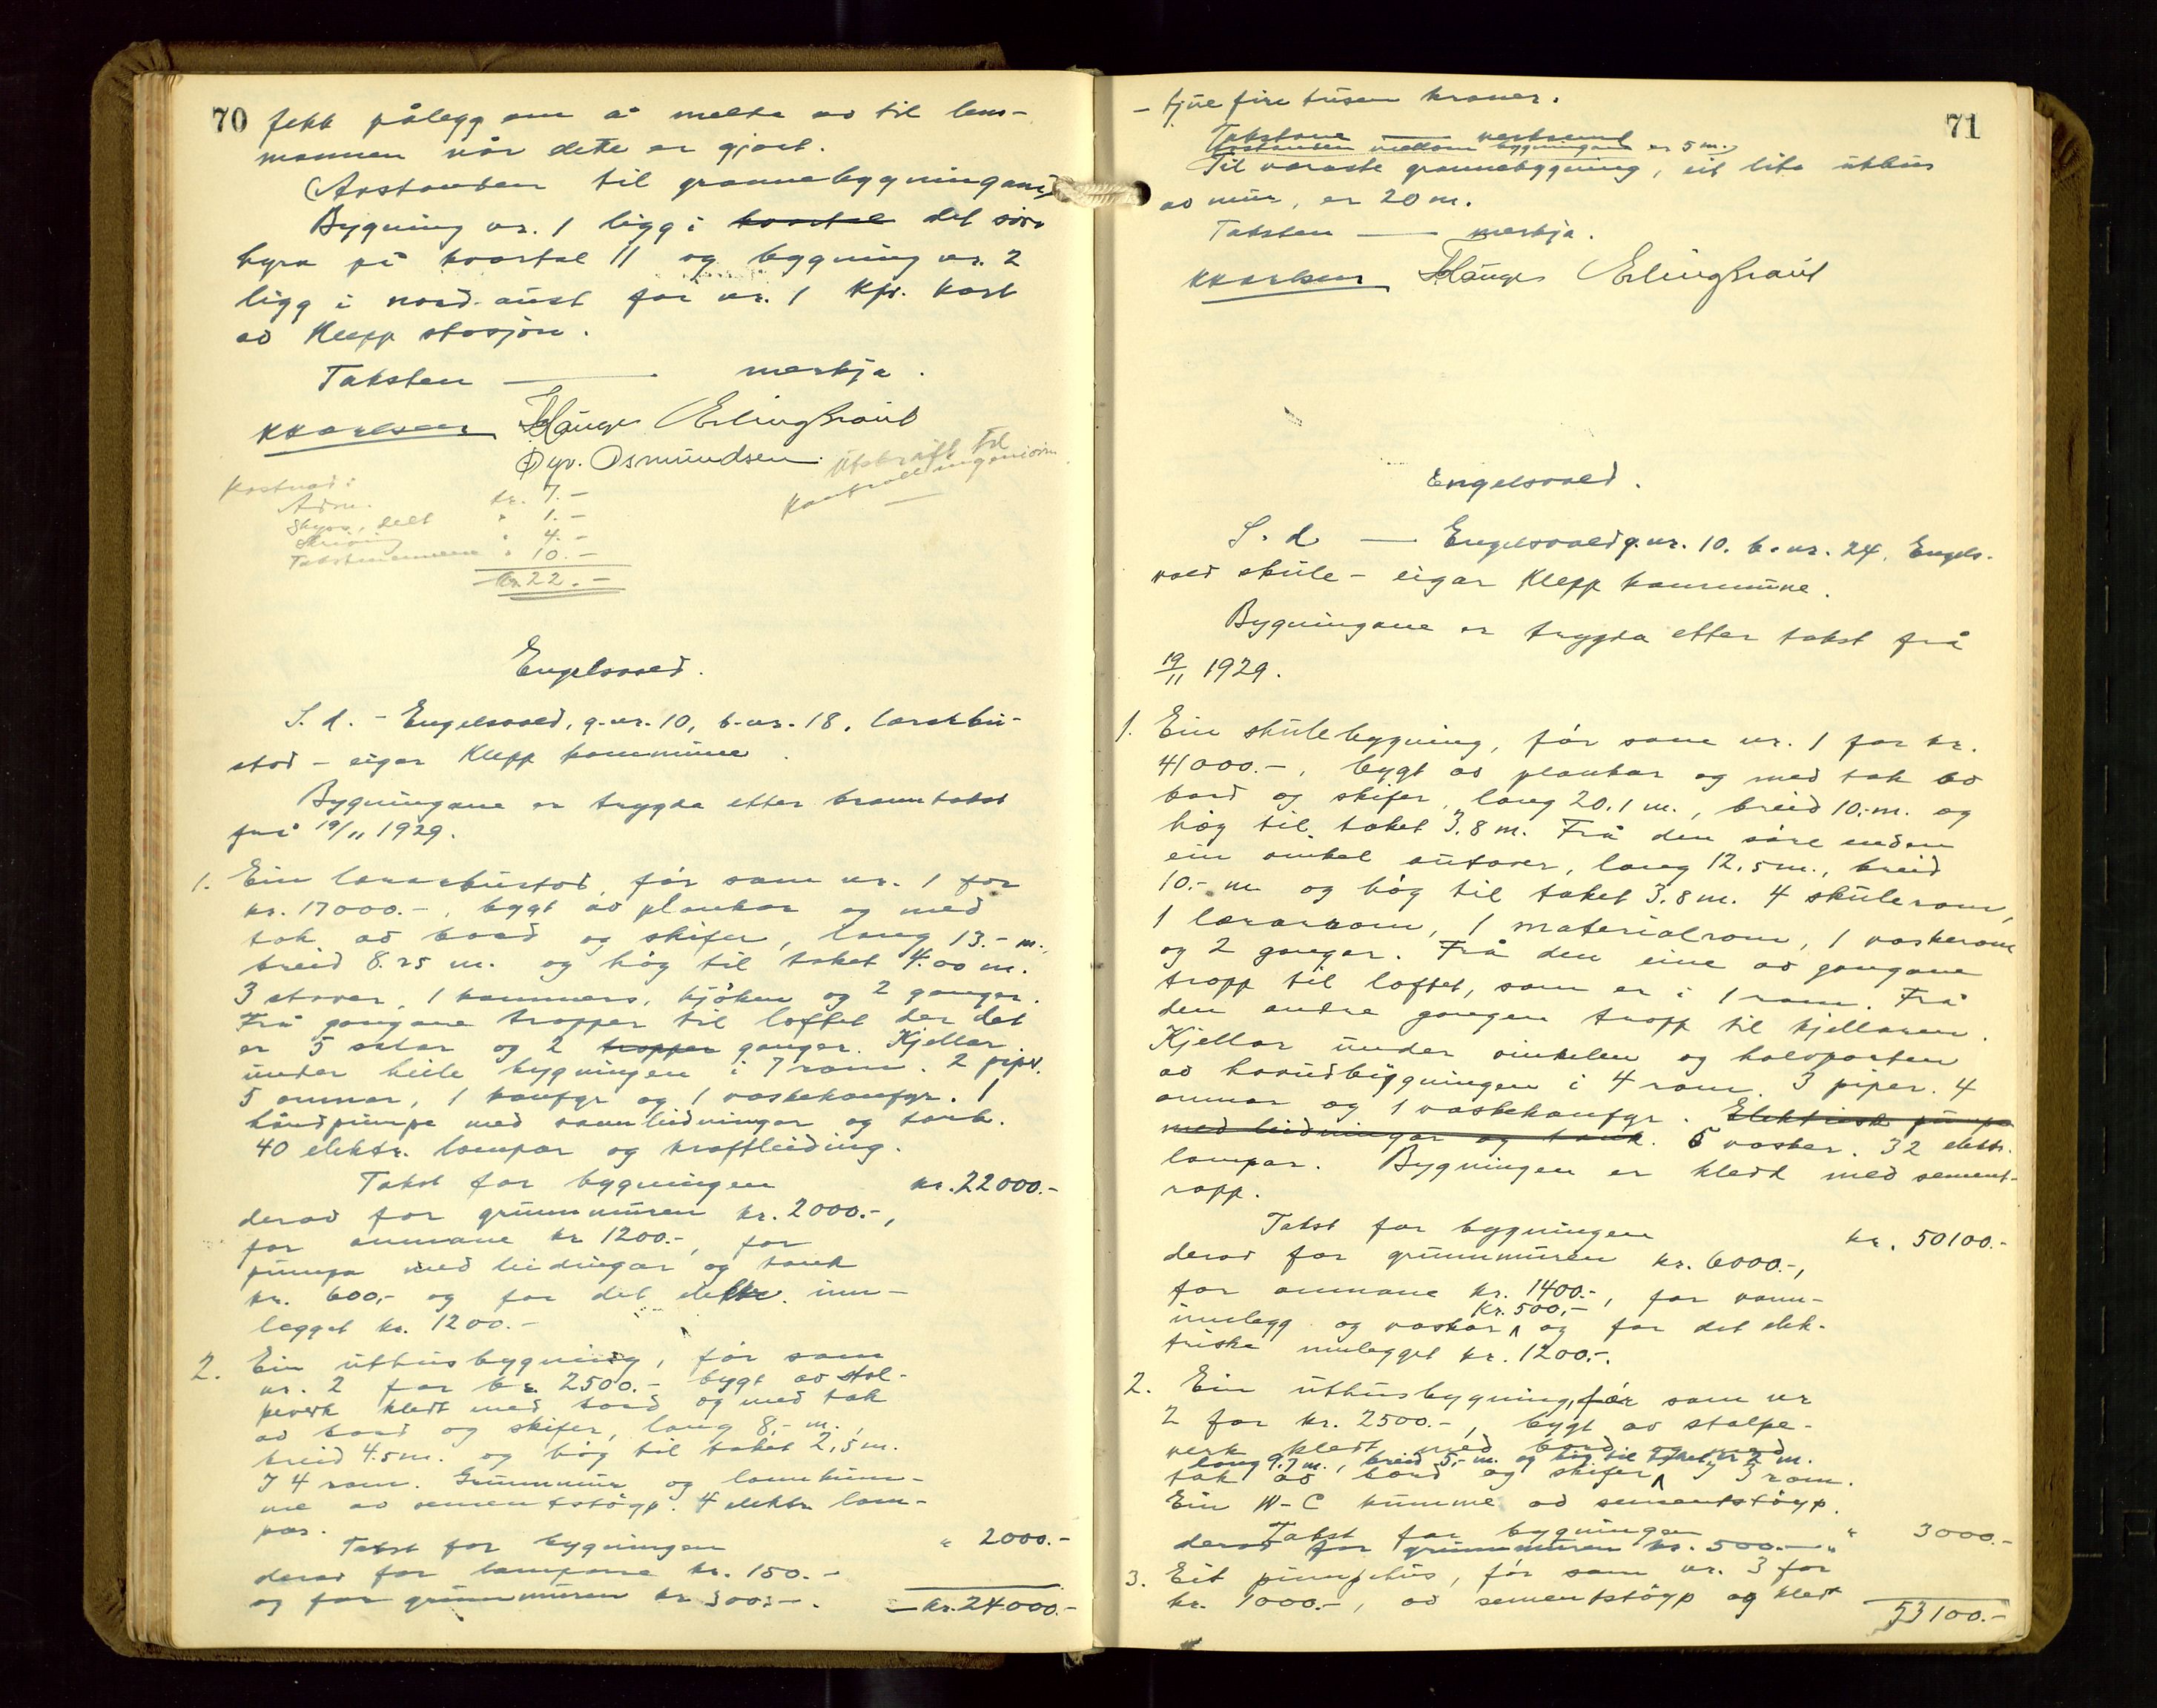 70
fekk pålegg om å melde av til lens-
mannen når dette er gjort.
(Avstanden til grannebygningane)
Bygning nr. 1 ligg i kvartal det søre
hyrn på kvartal 11 og bygning nr. 2
ligg i nord-aust for nr. 1 Kfr. kart
av Klepp stasjon.
Taksten — merkja.
K Karlsen T Hauge Erling Braut
Gyv. Osmundsen.
Utskrift til
Kontrollingeniören
Kostnad:
Adm. kr. 7.-
Skyss, delt " 1.-
Skriving " 4.-
Takstmennene " 10.-
Kr. 22.-
Engelsvold.
S. d. - Engelsvold, g.nr. 10, b.nr. 18, lærarbu-
stad - eigar Klepp kommune.
Bygningane er trygda etter branntakst
frå 19/11 1929.
1. Ein lærarbustad, før som nr. 1 for
kr. 17000.-, bygt av plankar og med
tak av bord og skifer, lang 13.- m.,
breid 8.25 m. og høg til taket 4.00 m.
3 stover, 1 kammers, kjøken og 2 ganger.
Frå gangane tropper til loftet der det
er 5 salar og 2 tropper ganger. Kjellar
under heile bygningen i 7 rom. 2 piper.
5 omnar, 1 komfyr og 1 vaskekomfyr. 1
håndpumpe med vannleidningar og tank.
40 elektr. lampar og kraftleiding.
Takst for bygningen kr. 22000.-
derav for grunnmuren kr. 2000.-,
for omnane kr 1200.-, for
pumpa med leidingar og tank
kr. 600,- og for det elektr. inn-
legget kr. 1200.-
2. Ein uthusbygning, før som
nr. 2 for kr. 2500.- bygt av stol-
peverk kledt med bord og med tak
av bord og skifer, lang 8,- m.,
breid 4.5 m. og høg til taket 2,5 m.
I 4 rom. Grunnmur og lannkum-
me av sementstøyp. 4 elektr. lam-
par.
Takst for bygningen " 2000.-
derav for lampane kr. 150.-
og for grunnmuren kr 300.-. kr. 24000.-
71
- tjue fire tusen kroner.
Takstane — vedkomt
Avstanden mellom bygningane er 5 m.
Til næraste grannebygning, eit lite uthus
av mur, er 20 m.
Taksten — merkja.
K Karlsen T Hauge Erling Braut
Engelsvold.
S. d — Engelsvold g.nr. 10. b.nr. 24, Engels-
vold skule - eigar Klepp kommune.
Bygningane er trygda etter takst frå
19/11 1929.
1. Ein skulebygning, før som nr. 1 for kr.
41000.-, bygt av plankar og med tak av
bord og skifer, lang 20.1 m., breid 10,- m. og
høg til taket 3.8 m. Frå den søre enden
ein vinkel austover, lang 12,5 m., breid
10.- m og høg til taket 3.8 m. 4 skulerom,
1 lærarrom, 1 materialrom, 1 vaskerom
og 2 gangar. Frå den eine av gangane
tropp til loftet, som er i 1 rom. Frå
den andre gangen tropp til kjellaren.
Kjellar under vinkelen og halvparten
av hovudbygningen i 4 rom. 3 piper. 4
omnar og 1 vaskekomfyr. Elektrisk pumpe
med leidningar og tank. 5 vasker. 32 elektr.
lampar. Bygningen er kledt med sement-
rapp.
Takst for bygningen kr. 50100.-
derav for grunnmuren kr. 6000.-,
for omnane kr. 1400.-, for vann-
innlegg og vaskar kr. 500,- og for det elek-
triske innlegget kr. 1200.-.
2. Ein uthusbygning, før som nr
2 for kr. 2500.-, bygt av stolpe-
verk kledt med bord og med
lang 9.7 m., breid 5,- m. og høg til taket 2 m.
tak av bord og skifer I 3 rom.
Ein W-C kumme av sementstøyp.
Takst for bygningen " 3000.-
derav for grunnmuren kr. 500.-
3. Eit pumpehus, før som nr. 3 for
kr. 1000.-, av sementstøyp og kledt
53100.-